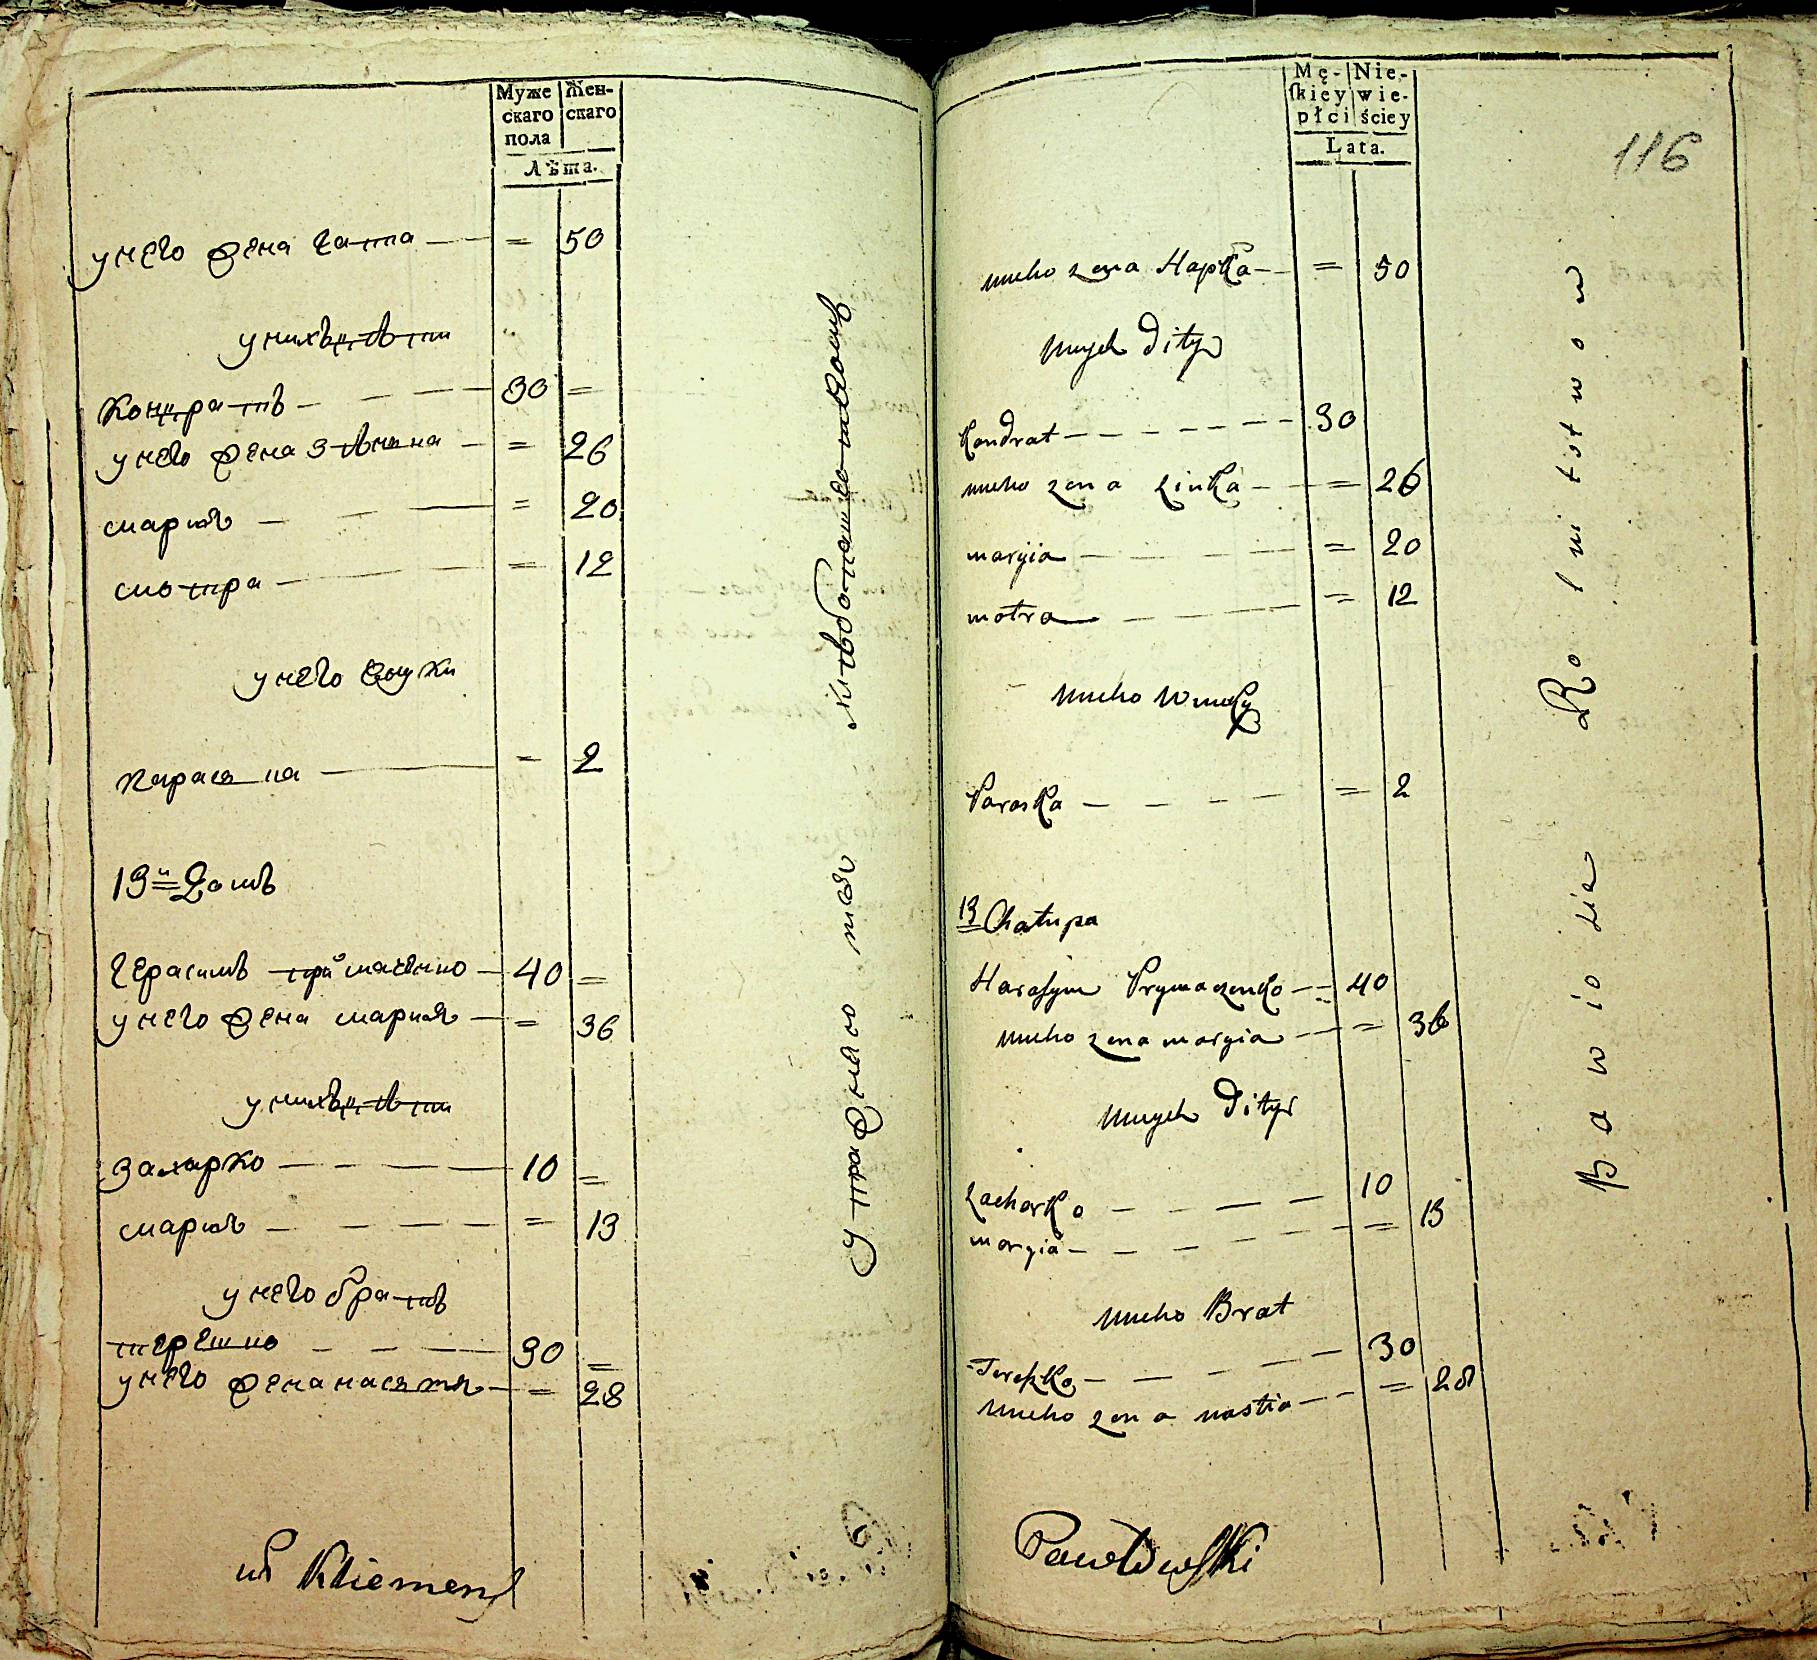 Муже
скаго
пола
Жен-
скаго
Лѣта.
у него жена гапа — = 50
у нихъ дѣти
Кондратъ — 30 =
у него жена зѣнка — = 26
мария — = 20
мотра — = 12
у него внуки
параска — = 2
13й домъ
герасимъ примаченко — 40 =
у него жена мария — = 36
у нихъ дѣти
захарко — 10 =
мария — = 13
у него братъ
терешко — 30 =
у него жена настя — = 28
упражняютая хлѣбопашествомъ
Kliemens
Mę-
skiey
płci
Nie-
wie-
ściey
Lata.
116
unieho żena Hapka — = 50
unych dity
Kondrat — 30
unieho żena zinka — = 26
maryia — = 20
motra — = 12
unieho wnuky
Paraska — = 2
13 Chałupa
Harasym Prymaczenko — 40
unieho żena margia — = 36
unych dity
Zacharko — 10
margia — = 13
unieho Brat
Tereszko — 30
unieho żena nastia — = 28
Bawio sia Rolnitstwow
Pawłowski